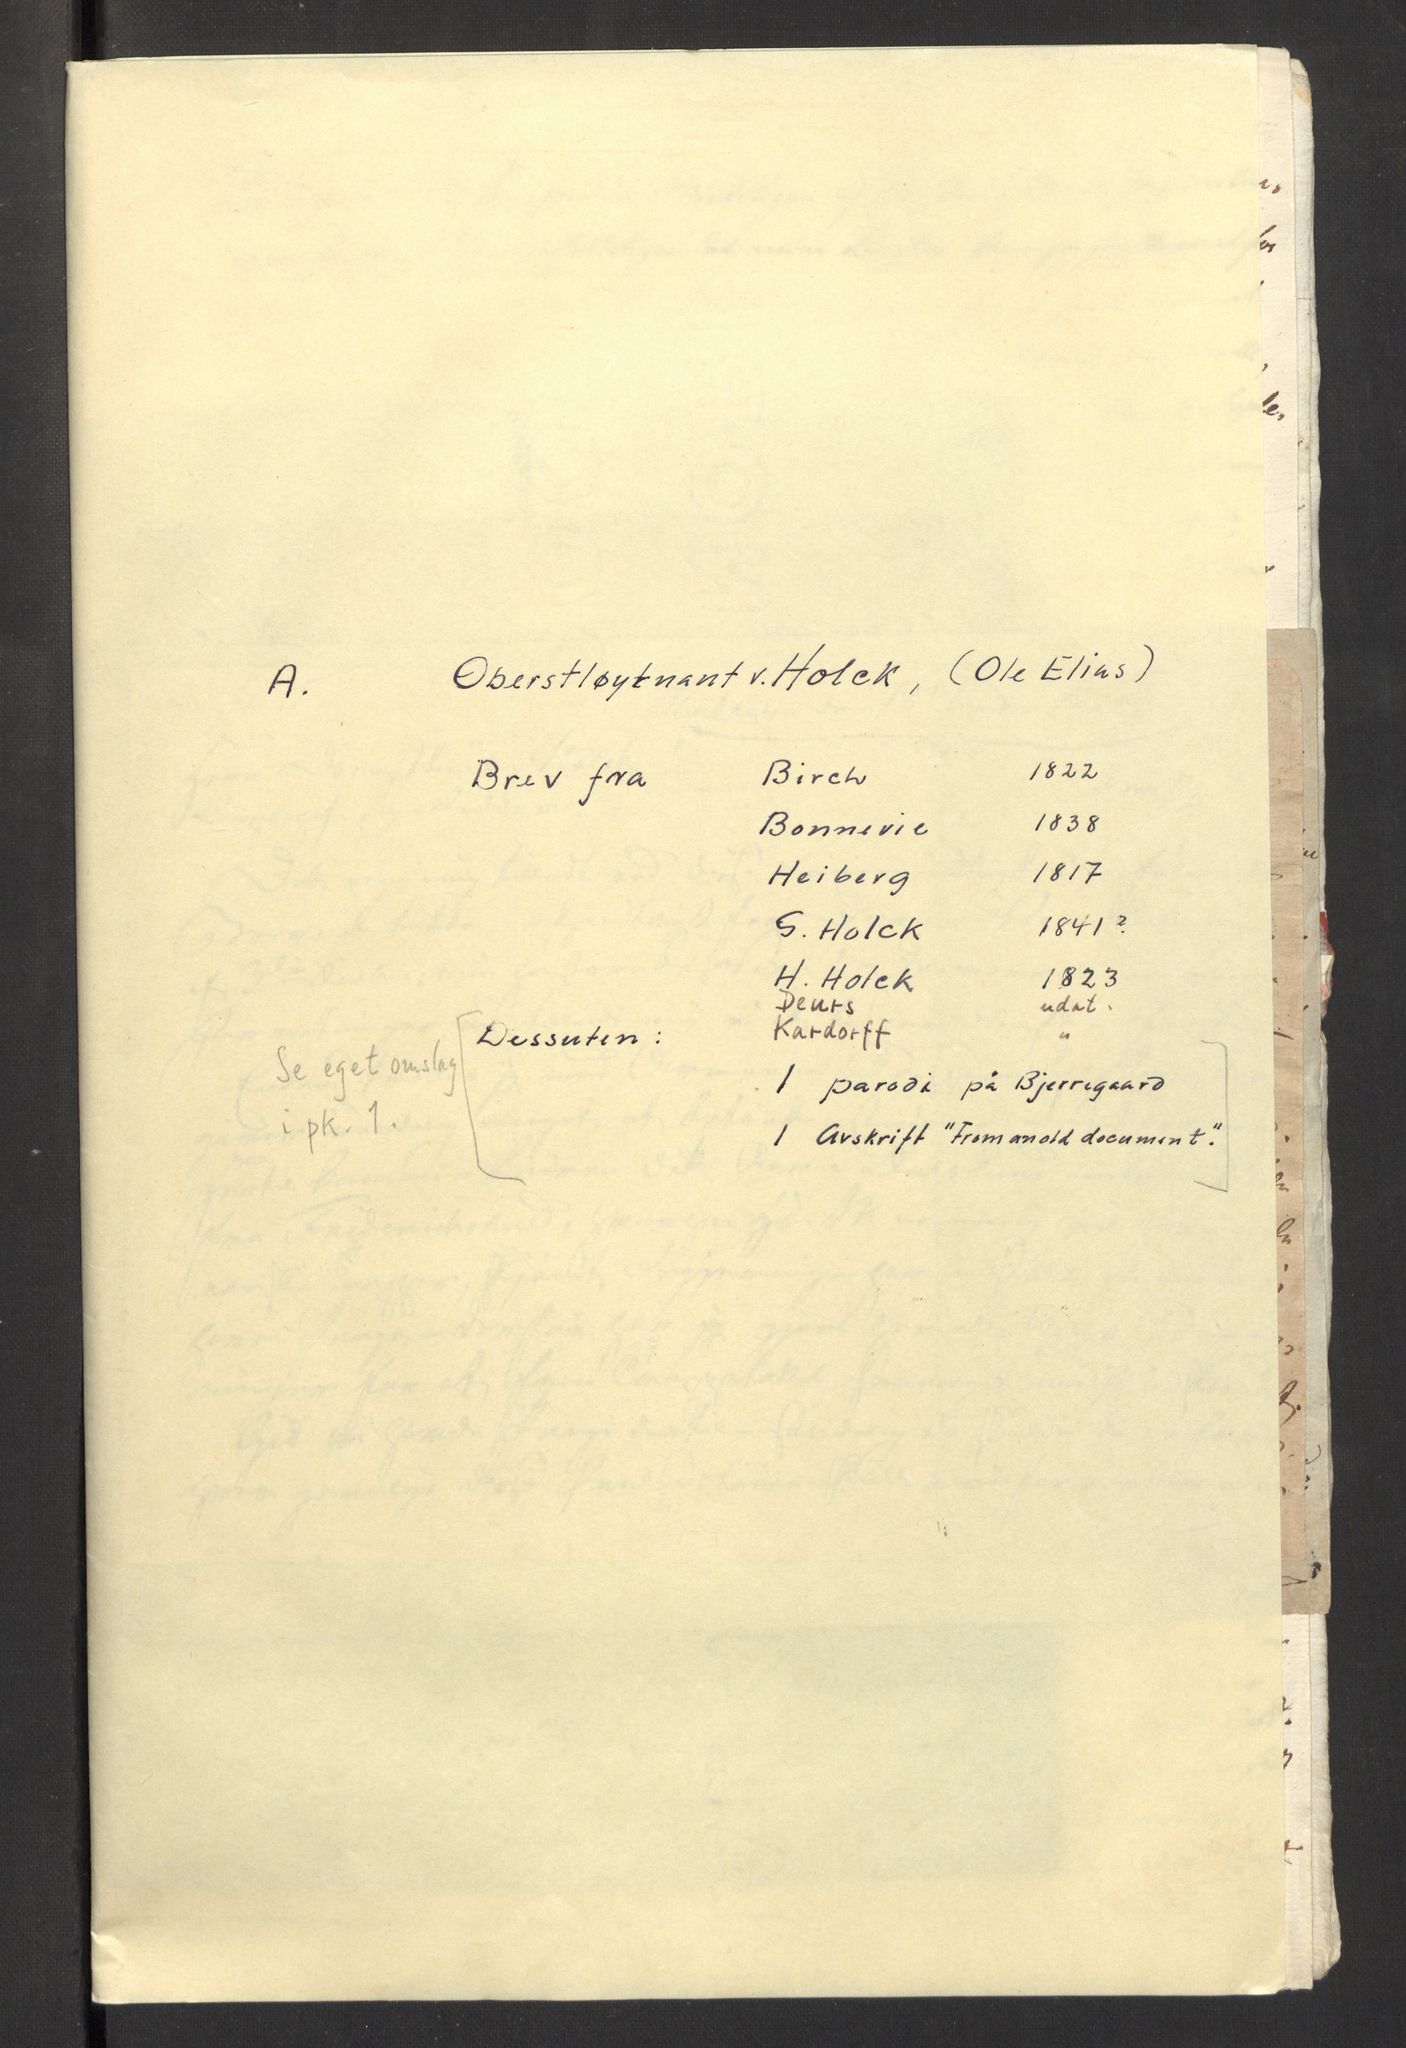 A. Oberstløytnant v. Holck, (Ole Elias)
Brev fra Birch 1822
Bonnevie 1838
Heiberg 1817
G. Holck 1841?
H. Holck 1823
Deurs udat.
Kardorff "
Dessuten:
Se eget omslag
i pk. 1.
1 parodi på Bjerregaard
1 Avskrift "From an old document".